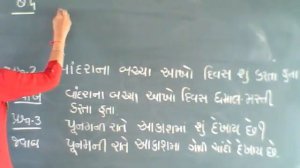 વાંદરાના બચ્ચા આખો દિવસ શું કરતા હતા
વાંદરાના બચ્ચા આખો દિવસ ધમાલ મસ્તી
કરતા હતા
પ્રશ્ન-3 પૂનમની રાતે આકાશમાં શું દેખાય છે?
જવાબ પૂનમની રાતે આકાશમાં ચાંદો દેખાય છે.